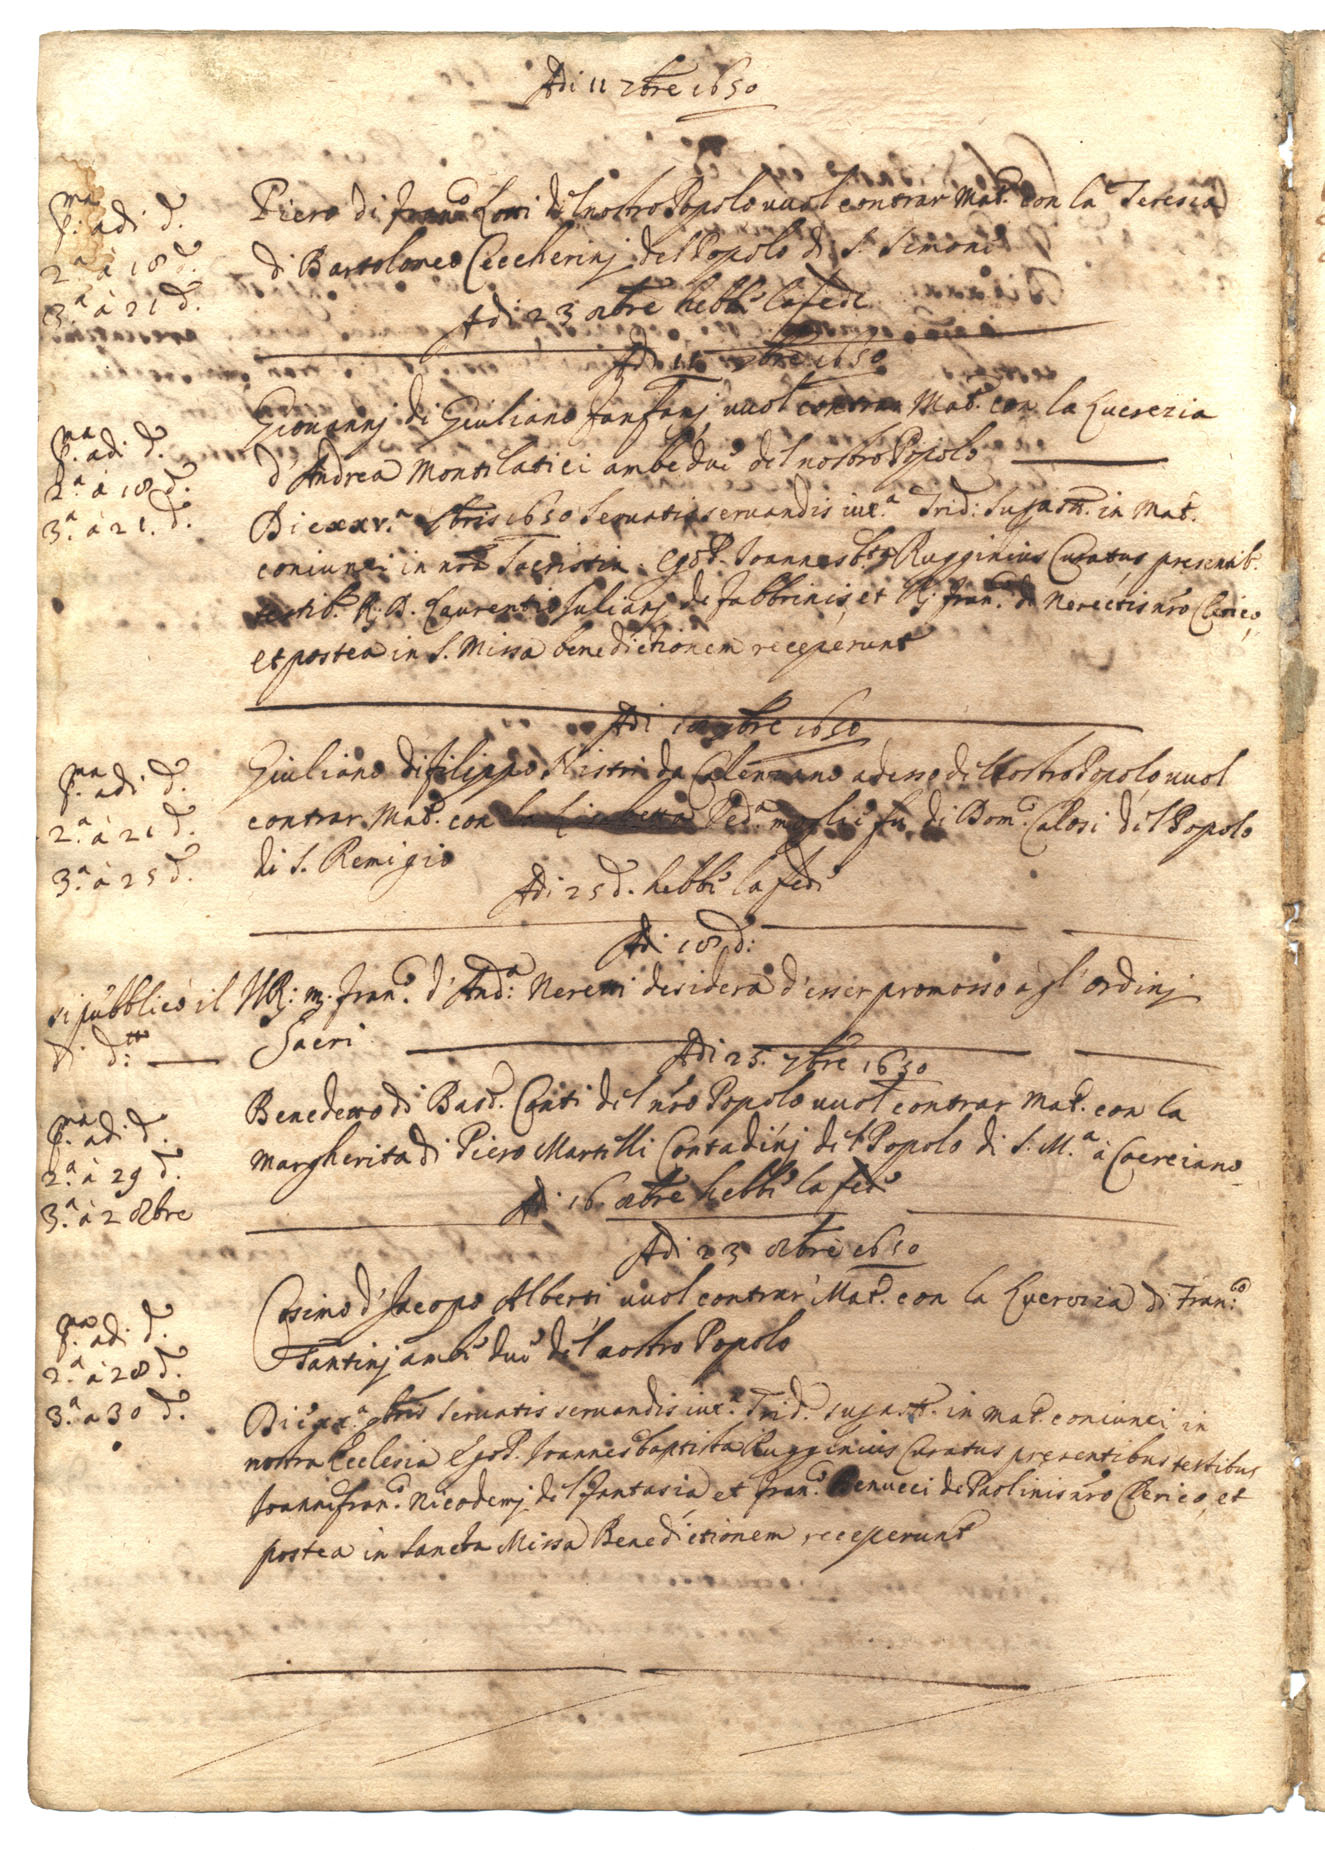 Adi 11 7bre 1650
p.ª adi d.º
2.ª à 18 d.º
3.ª à 21 d.º
Piero di Fran.º Lotti del nostro Popolo vuol contrar Mat.º con la Teresia
di Bartolomeo Ceccherinj del Popolo di S. Simone
Adi 23 8bre hebbe la fede
Adi 11 7bre 1650
p.ª adi d.º
2.ª à 18 d.º
3.ª à 21. d.º
Giovannj di Giuliano Fanfanj vuol contrar Mat.º con la Lucrezia
d'Andrea Montilatici ambe due del nostro Popolo
Die xxv.ª 8bris 1650 Servatis servandis iux.ª Trid: in Mat.º
coniunxi in nrã Sacristia. Ego P. Joannes b.ta Rugginius Curatus presentib.
testib. R. D. Laurentio Julianj de Fabbrinis, et R. Fran.º de Nerettis nrõ Clerico,
et postea in S. Missa benedictionem receperunt
Adi 18 7bre 1650
p.ª adi d.º
2.ª à 21 d.º
3.ª à 25 d.º
Giuliano di Filippo Nistri da Calenzano adesso del nostro Popolo vuol
contrar Mat.º con la Lisabetta Ped.ª moglie fu di Dom.º Calosi del Popolo
di S. Remigio
Adi 25 d.º hebbe la fede
Adi 18 d:
si pubblicò il
di d:tto
M R: m. Fran.º d'And:ª Neretti desidera d'esser promosso à gl'ordinj
Sacri
Adi 25. 7bre 1650
p.ª adi d.º
2.ª à 29 d.º
3.ª à 2 8bre
Benedetto di Bast.º Conti del nrõ Popolo vuol contrar Mat.º con la
Margherita di Piero Martelli Contadinj del Popolo di S. M.ª à Coerciano
Adi 16 8bre hebbe la fede
Adi 23 8bre 1650
p.ª adi d.º
2.ª à 28 d.º
3.ª à 30 d.º
Cosimo d'Jacopo Alberti vuol contrar Mat.º con la Lucrezia di Fran:co
Santinj ambe due del nostro Popolo
Die xx.ª 9bris Servatis servandis iux.ª Trid. in Mat.º coniunxi in
nostra Ecclesia Ego P. Joannes baptista Rugginius Curatus presentibus testibus
Joannefran.º Nicodemj del Fantasia et Fran.º Benucci de Paolinis nrõ Clerico, et
postea in Sancta Missa Benedictionem receperunt